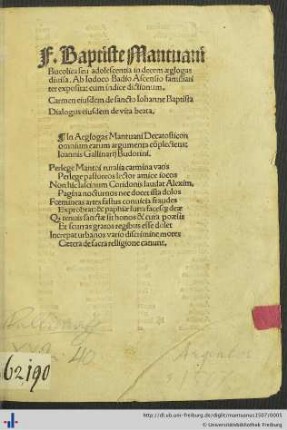 F. Baptiste Mantuani
Bucolica seu adolescentia in decem æglogas
diuisa. Ab Iodoco Badio Ascensio familiari
ter exposita: cum indice dictionum.
Carmen eiusdem de sancto Iohanne Baptista
Dialogus eiusdem de vita beata.
¶ In Aeglogas Mantuani Decatostichon
omnium earum argumenta cōplectens
Ioannis Gallinarij Budorini.
Perlege Mantoi ruralia carmina vatis
Perlege pastoreos lector amice iocos
Non hic lasciuum Coridonis laudat Alexim,
Pagina nocturnos nec docet illa dolos
Fœmineas artes fastus conuicia fraudes
Exprobrat: & paphiæ furta facesq; deæ
Et
Increpat urbanos vario discrimine mores
Cætera de sacra relligione canunt.
40
62190
http://dl.ub.uni-freiburg.de/diglit/mantuanus1507/0001
© Universitätsbibliothek Freiburg